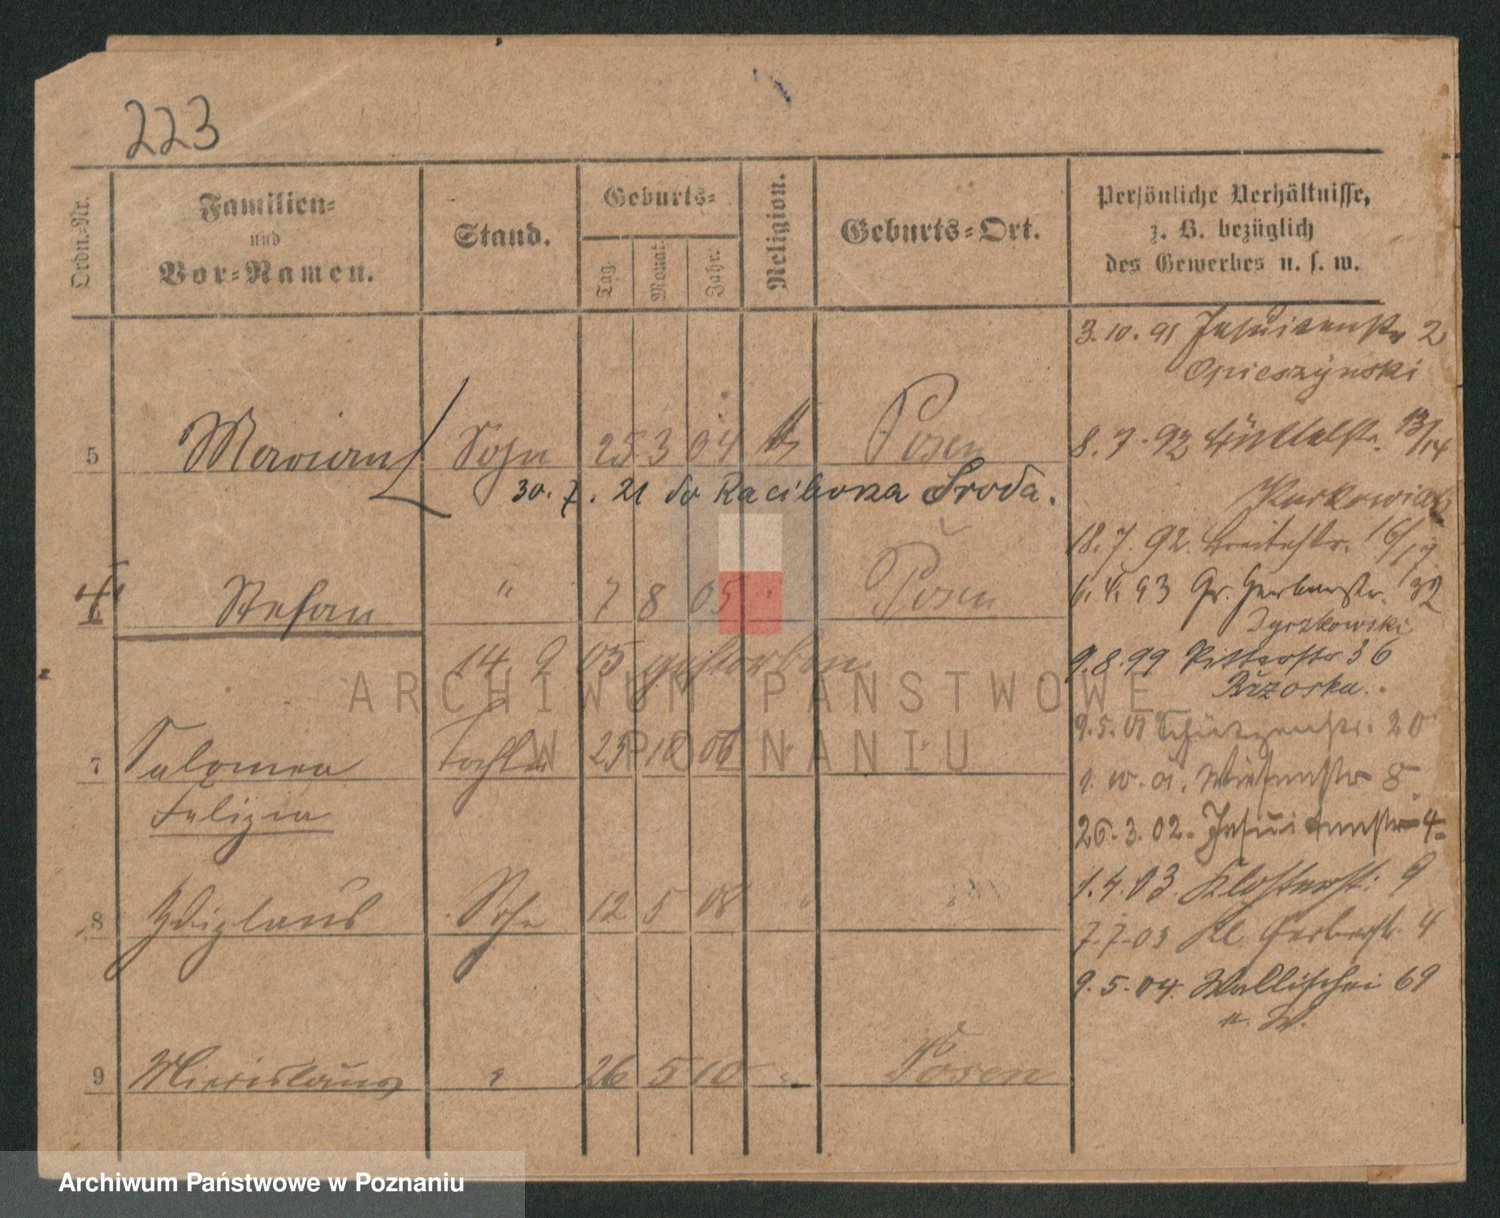 223
Ordn.-Nr.
Familien-
und
Vor-Namen.
Stand.
Geburts-
Tag.
Monat.
Jahr.
Religion.
Geburts-Ort.
Persönliche Verhältnisse,
z. B. bezüglich
des Gewerbes u. s. w.
3.10.91 Jesuitenstr 2
Opieszynski
5 Marian Sohn 25 3 04 Posen
8.7.92 13/14
30.7.21 do Raciborza Środa.
18.7.92. Breitestr. 16/17
Stefan " 7 8 05 " Posen
6.4.93 Gr. Gerberstr. 32
14 9 05 gestorben
9.8.99 Ritterstr 36
Brzoska.
7 Salomea Tochter 25 10 06 " "
9.5.01 Schützenstr. 20
Felizia
1.10.01. Wiesenstr 8.
26.3.02. Jesuitenstr 4
8 Sohn 12 5 08 "
1.4.03 Klosterstr. 9
7.7.03 Kl. Gerberstr. 4
9.5.04. Wallischei 69
n. W.
9 Miecislaus " 26 5 10 " Posen
ARCHIWUM PAŃSTWOWE
W POZNANIU
Archiwum Państwowe w Poznaniu